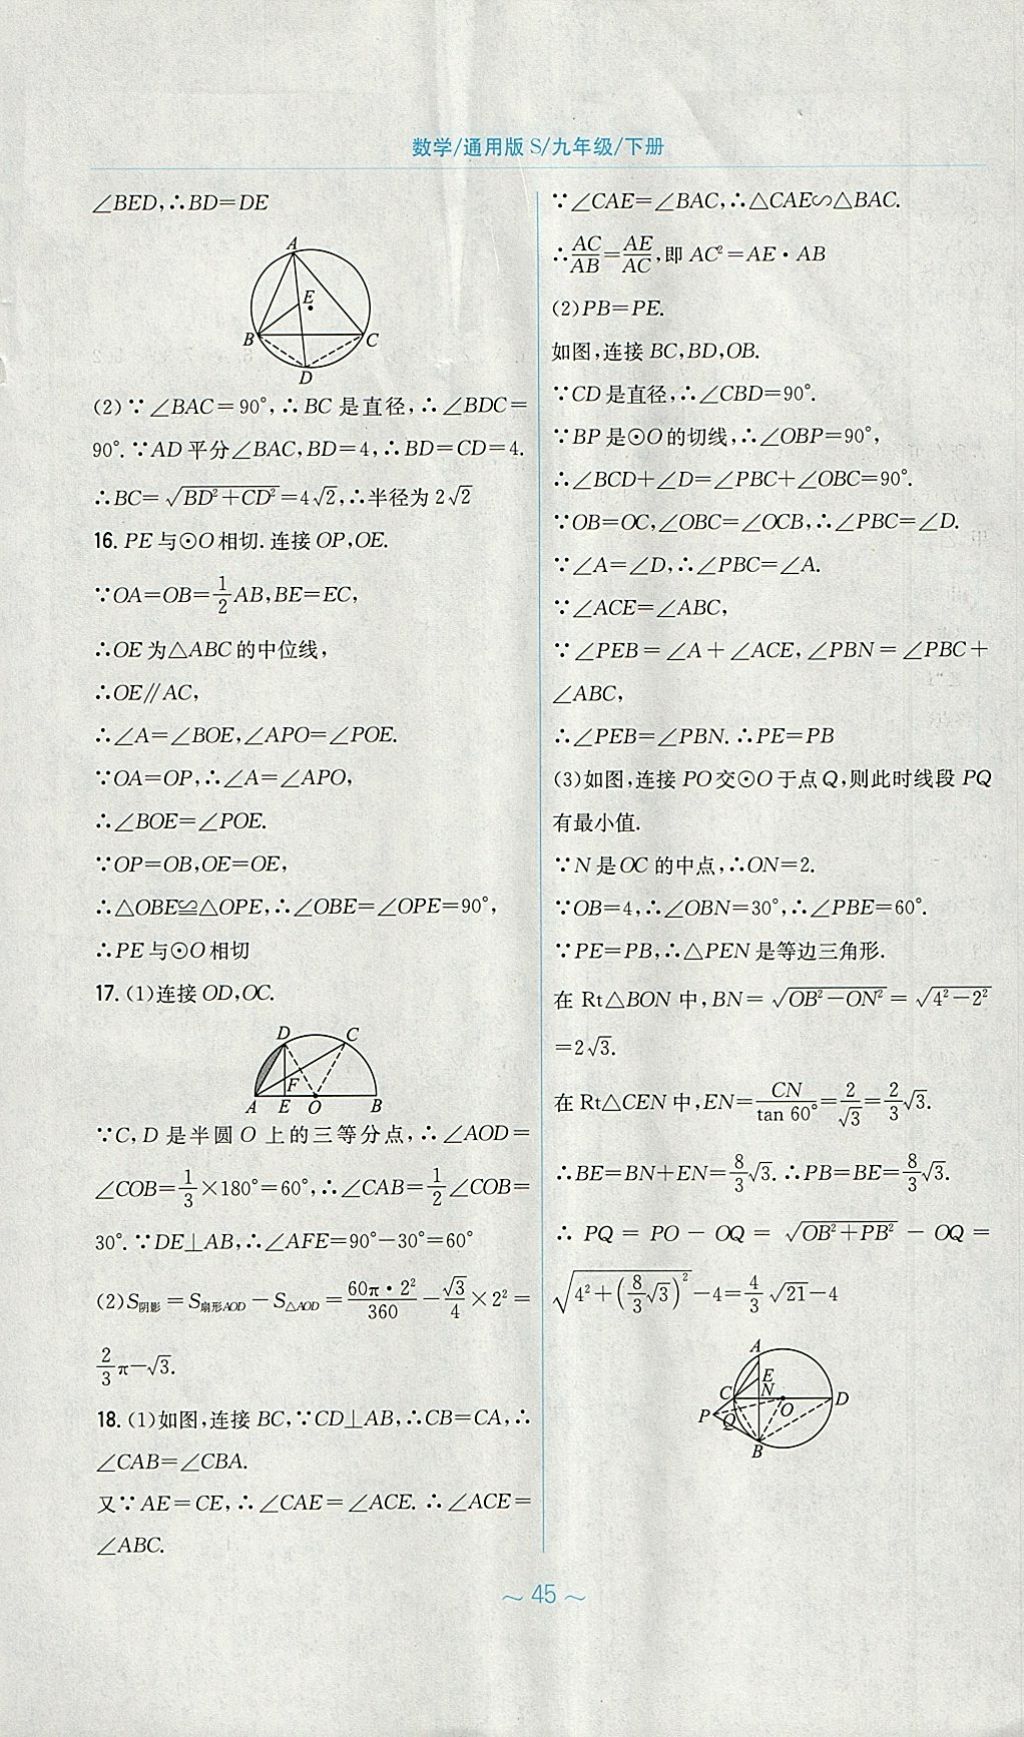 数学/通用版 S/九年级/下册
∠BED,∴BD=DE
A
E
B
C
D
(2)∵∠BAC=90°,∴BC 是直径,∴∠BDC=
90°.∵AD 平分∠BAC,BD=4,∴BD=CD=4.
∴BC=√(BD²+CD²)=4√2,∴半径为 2√2
16. PE 与⊙O 相切. 连接 OP,OE.
∵OA=OB=1/2AB,BE=EC,
∴OE 为△ABC 的中位线,
∴OE∥AC,
∴∠A=∠BOE,∠APO=∠POE.
∵OA=OP,∴∠A=∠APO,
∴∠BOE=∠POE.
∵OP=OB,OE=OE,
∴△OBE≌△OPE,∴∠OBE=∠OPE=90°,
∴PE 与⊙O 相切
17. (1)连接 OD,OC.
D
C
F
A
E
O
B
∵C,D 是半圆 O 上的三等分点,∴∠AOD=
∠COB=1/3×180°=60°,∴∠CAB=1/2∠COB=
30°.∵DE⊥AB,∴∠AFE=90°-30°=60°
(2)S阴影=S扇形AOD-S△AOD=60π·2²/360-√3/4×2²=
2/3π-√3.
18. (1)如图,连接 BC,∵CD⊥AB,∴CB=CA,∴
∠CAB=∠CBA.
又∵AE=CE,∴∠CAE=∠ACE.∴∠ACE=
∠ABC.
∵∠CAE=∠BAC,∴△CAE∽△BAC.
∴AC/AB=AE/AC,即 AC²=AE·AB
(2)PB=PE.
如图,连接 BC,BD,OB.
∵CD 是直径,∴∠CBD=90°.
∵BP 是⊙O 的切线,∴∠OBP=90°,
∴∠BCD+∠D=∠PBC+∠OBC=90°.
∵OB=OC,∠OBC=∠OCB,∴∠PBC=∠D.
∵∠A=∠D,∴∠PBC=∠A.
∵∠ACE=∠ABC,
∵∠PEB=∠A+∠ACE,∠PBN=∠PBC+
∠ABC,
∴∠PEB=∠PBN.∴PE=PB
(3)如图,连接 PO 交⊙O 于点 Q,则此时线段 PQ
有最小值.
∵N 是 OC 的中点,∴ON=2.
∵OB=4,∴∠OBN=30°,∴∠PBE=60°.
∵PE=PB,∴△PEN 是等边三角形.
在 Rt△BON 中,BN=√(OB²-ON²)=√(4²-2²)
=2√3.
在 Rt△CEN 中,EN=CN/tan 60°=2/√3=2/3√3.
∴BE=BN+EN=8/3√3.∴PB=BE=8/3√3.
∴PQ=PO-OQ=√(OB²+PB²)-OQ=
√(4²+(8/3√3)²)-4=4/3√21-4
A
E
C
N
D
P
Q
O
B
~ 45 ~